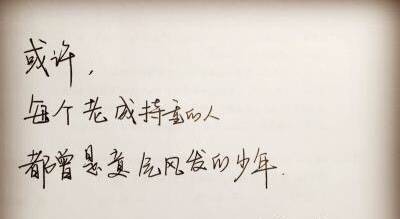 或许，
每个老成持重的人
都曾是意气风发的少年.